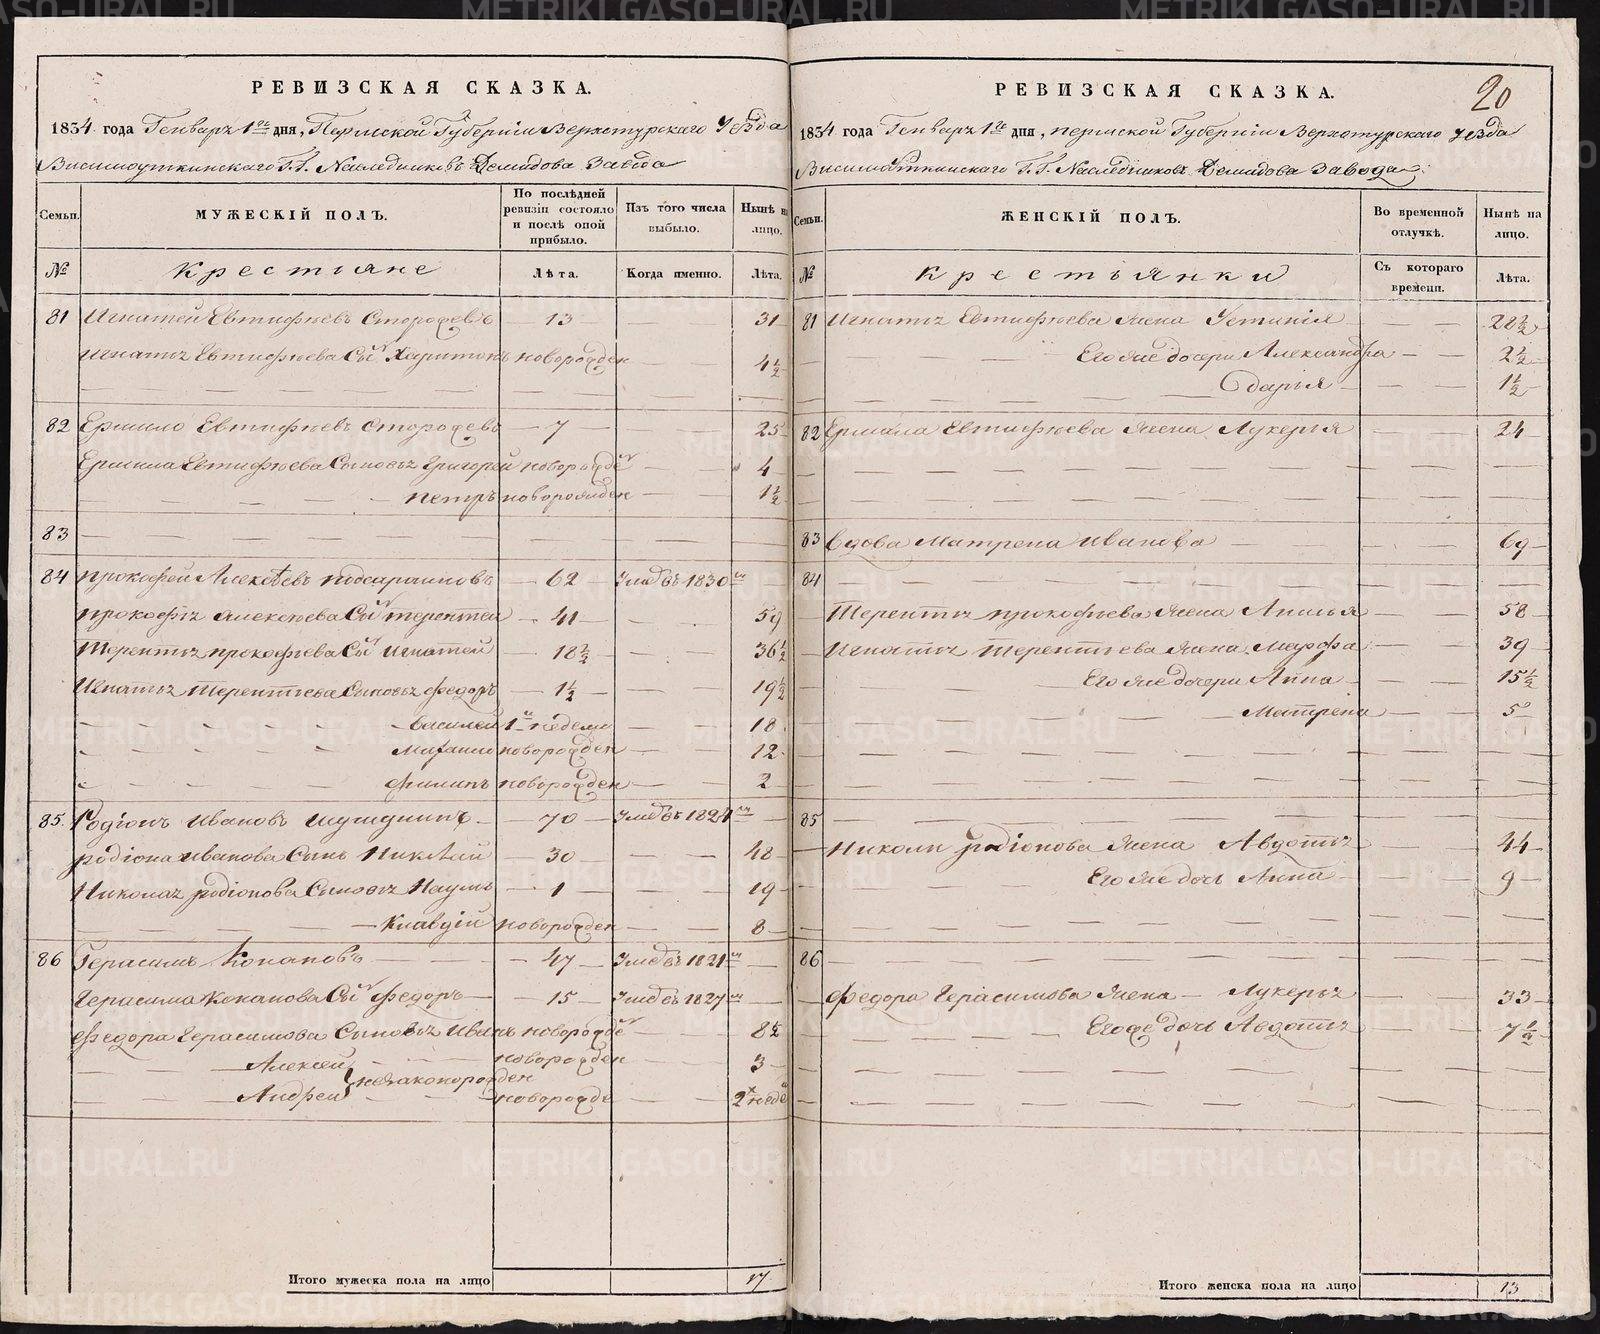 РЕВИЗСКАЯ СКАЗКА.
1834 года Генваря 1го дня, Пермской Губерніи Верхотурскаго Уѣзда
Висимоуткинскаго Г.Г. Наслѣдниковъ Демидова Завода
Семьи.
МУЖЕСКІЙ ПОЛЪ.
По послѣдней ревизіи состояло и послѣ оной прибыло.
Изъ того числа выбыло.
Нынѣ на лицо.
№
Крестьяне
Лѣта.
Когда именно.
Лѣта.
81 Игнатей Евтифѣевъ Сторожевъ 13 31
Игнатья Евтифѣева Сынъ Харитонъ новорожден 4½
82 Ермило Евтифѣевъ Сторожевъ 7 25
Ермила Евтифѣева Сыновья Григорей новорожден 4
Петръ новорожден 1½
83
84 Прокофей Алексѣевъ 62 Умеръ въ 1830м
Прокофья Алексѣева Сынъ Терентей 41 59
Терентья Прокофьева Сынъ Игнатей 18½ 36½
Игнатья Терентьева Сыновья Федоръ 1½ 19½
Василей 1й недели 18
новорожден 12
Филипъ новорожден 2
85. Родіонъ Ивановъ 70 Умеръ въ 1824м
Родіона Иванова Сынъ Николай 30 48
Николая Родіонова Сыновья Наумъ 1 19
Клавдій новорожден 8
86 Герасимъ Конановъ 47 Умеръ въ 1821м
Герасима Конанова Сынъ Федоръ 15 Умеръ въ 1827м
Федора Герасимова Сыновья Иванъ новорожден 8½
Алексей новорожден 3
незаконорожден
Андрей новорожде 2х неде
Итого мужеска пола на лицо 17
20
РЕВИЗСКАЯ СКАЗКА.
1834 года Генваря 1го дня, Пермской Губерніи Верхотурскаго Уѣзда
Висимоуткинскаго Г.Г. Наслѣдниковъ Демидова Завода.
Семьи.
ЖЕНСКІЙ ПОЛЪ.
Во временной отлучкѣ.
Нынѣ на лицо.
№
Крестьянки
Съ котораго времени.
Лѣта.
81 Игнатья Евтифѣева жена Устинія 22½
Его же дочери Александра 2½
Дарья 1½
82 Ермила Евтифѣева жена Лукерья 24
83 Вдова Матрена Иванова 69
84
Терентья Прокофьева жена Апилья 58
Игнатья Терентьева жена Марфа 39
Его же дочери Анна 15½
Матрена 5
85
Николи Родіонова жена Авдотья 44
Его же дочь Анна 9
86
Федора Герасимова жена Лукерья 33
Его же дочь Авдотья 7½
Итого женска пола на лицо 13
METRIKI.GASO-URAL.RU